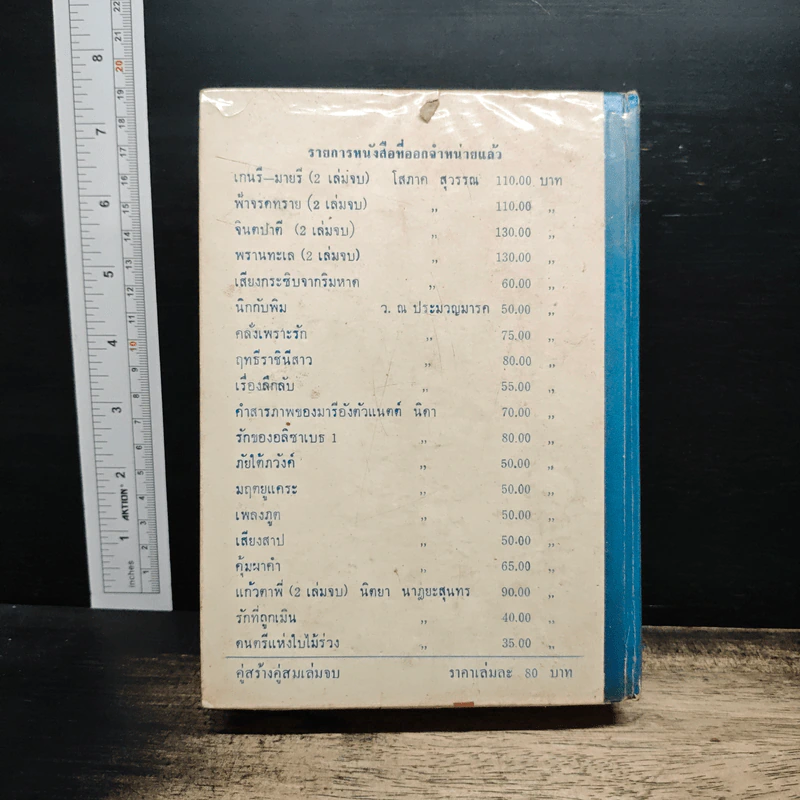 รายการหนังสือที่ออกจำหน่ายแล้ว
เกนรี—มายรี (2 เล่มจบ) โสภาค สุวรรณ 110.00 บาท
ฟ้าจรดทราย (2 เล่มจบ) ,, 110.00 ,,
จินตปาตี (2 เล่มจบ) ,, 130.00 ,,
พรานทะเล (2 เล่มจบ) ,, 130.00 ,,
เสียงกระซิบจากริมหาด ,, 60.00 ,,
นิกกับพิม ว. ณ ประมวญมารค 50.00 ,,
คลั่งเพราะรัก ,, 75.00 ,,
ฤทธีราชินีสาว ,, 80.00 ,,
เรื่องลึกลับ ,, 55.00 ,,
คำสารภาพของมารีอังตัวแนตต์ นิดา 70.00 ,,
รักของอลิซาเบธ 1 ,, 80.00 ,,
ภัยใต้ภวังค์ ,, 50.00 ,,
มฤตยูแคระ ,, 50.00 ,,
เพลงภูต ,, 50.00 ,,
เสียงสาป ,, 50.00 ,,
คุ้มผาคำ ,, 65.00 ,,
แก้วตาพี่ (2 เล่มจบ) นิตยา นาฏยะสุนทร 90.00 ,,
รักที่ถูกเมิน ,, 40.00 ,,
ดนตรีแห่งใบไม้ร่วง ,, 35.00 ,,
คู่สร้างคู่สมเล่มจบ ราคาเล่มละ 80 บาท
8
7
6
5
4
3
2
1
inches
AKTION
22
21
20
19
18
17
16
15
14
13
12
11
10
9
8
7
6
5
4
3
2
1